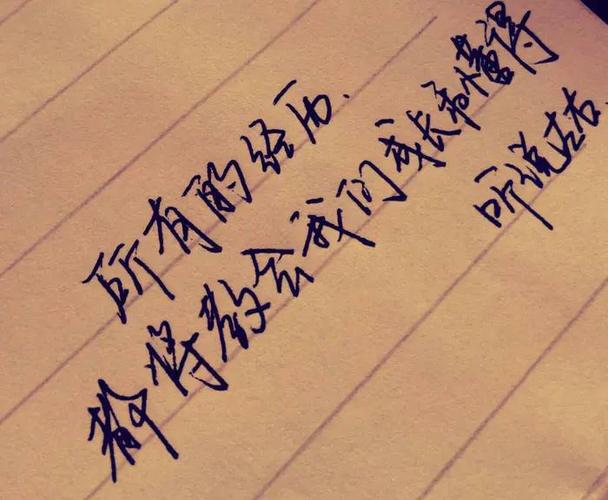 所有的经历.
都将教会我们成长和懂得
听说左右.